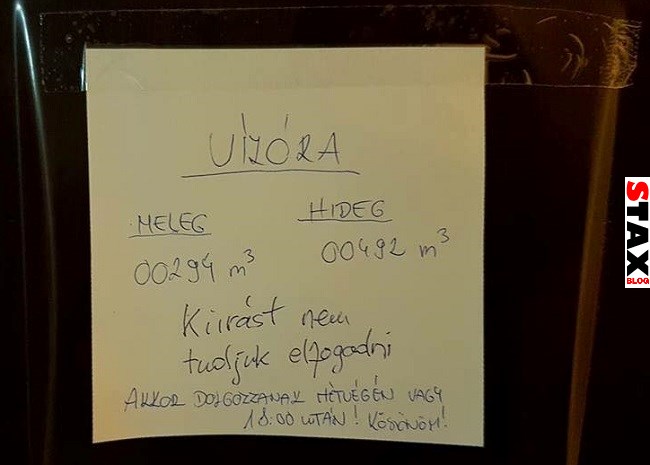 VÍZÓRA
MELEG HIDEG
00294 m³ 00492 m³
Kiírást nem
tudjuk elfogadni
AKKOR DOLGOZZANAK HÉTVÉGÉN VAGY
18:00 UTÁN! KÖSZÖNÖM!
STAX
BLOG